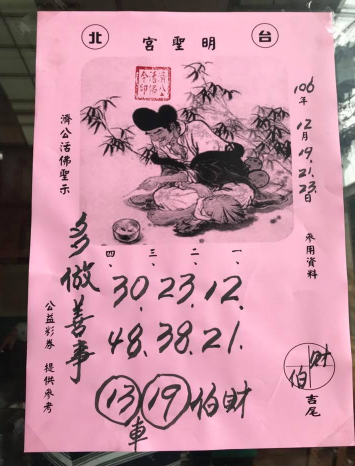 台北
明聖宮
106年12月19.21.23日
參用資料
濟公活佛聖示
濟公活佛令印
多做善事
一、二、三、四、
12.23.30
21.38.48.
13 19 伯財
車
財伯
吉尾
公益彩券 提供參考